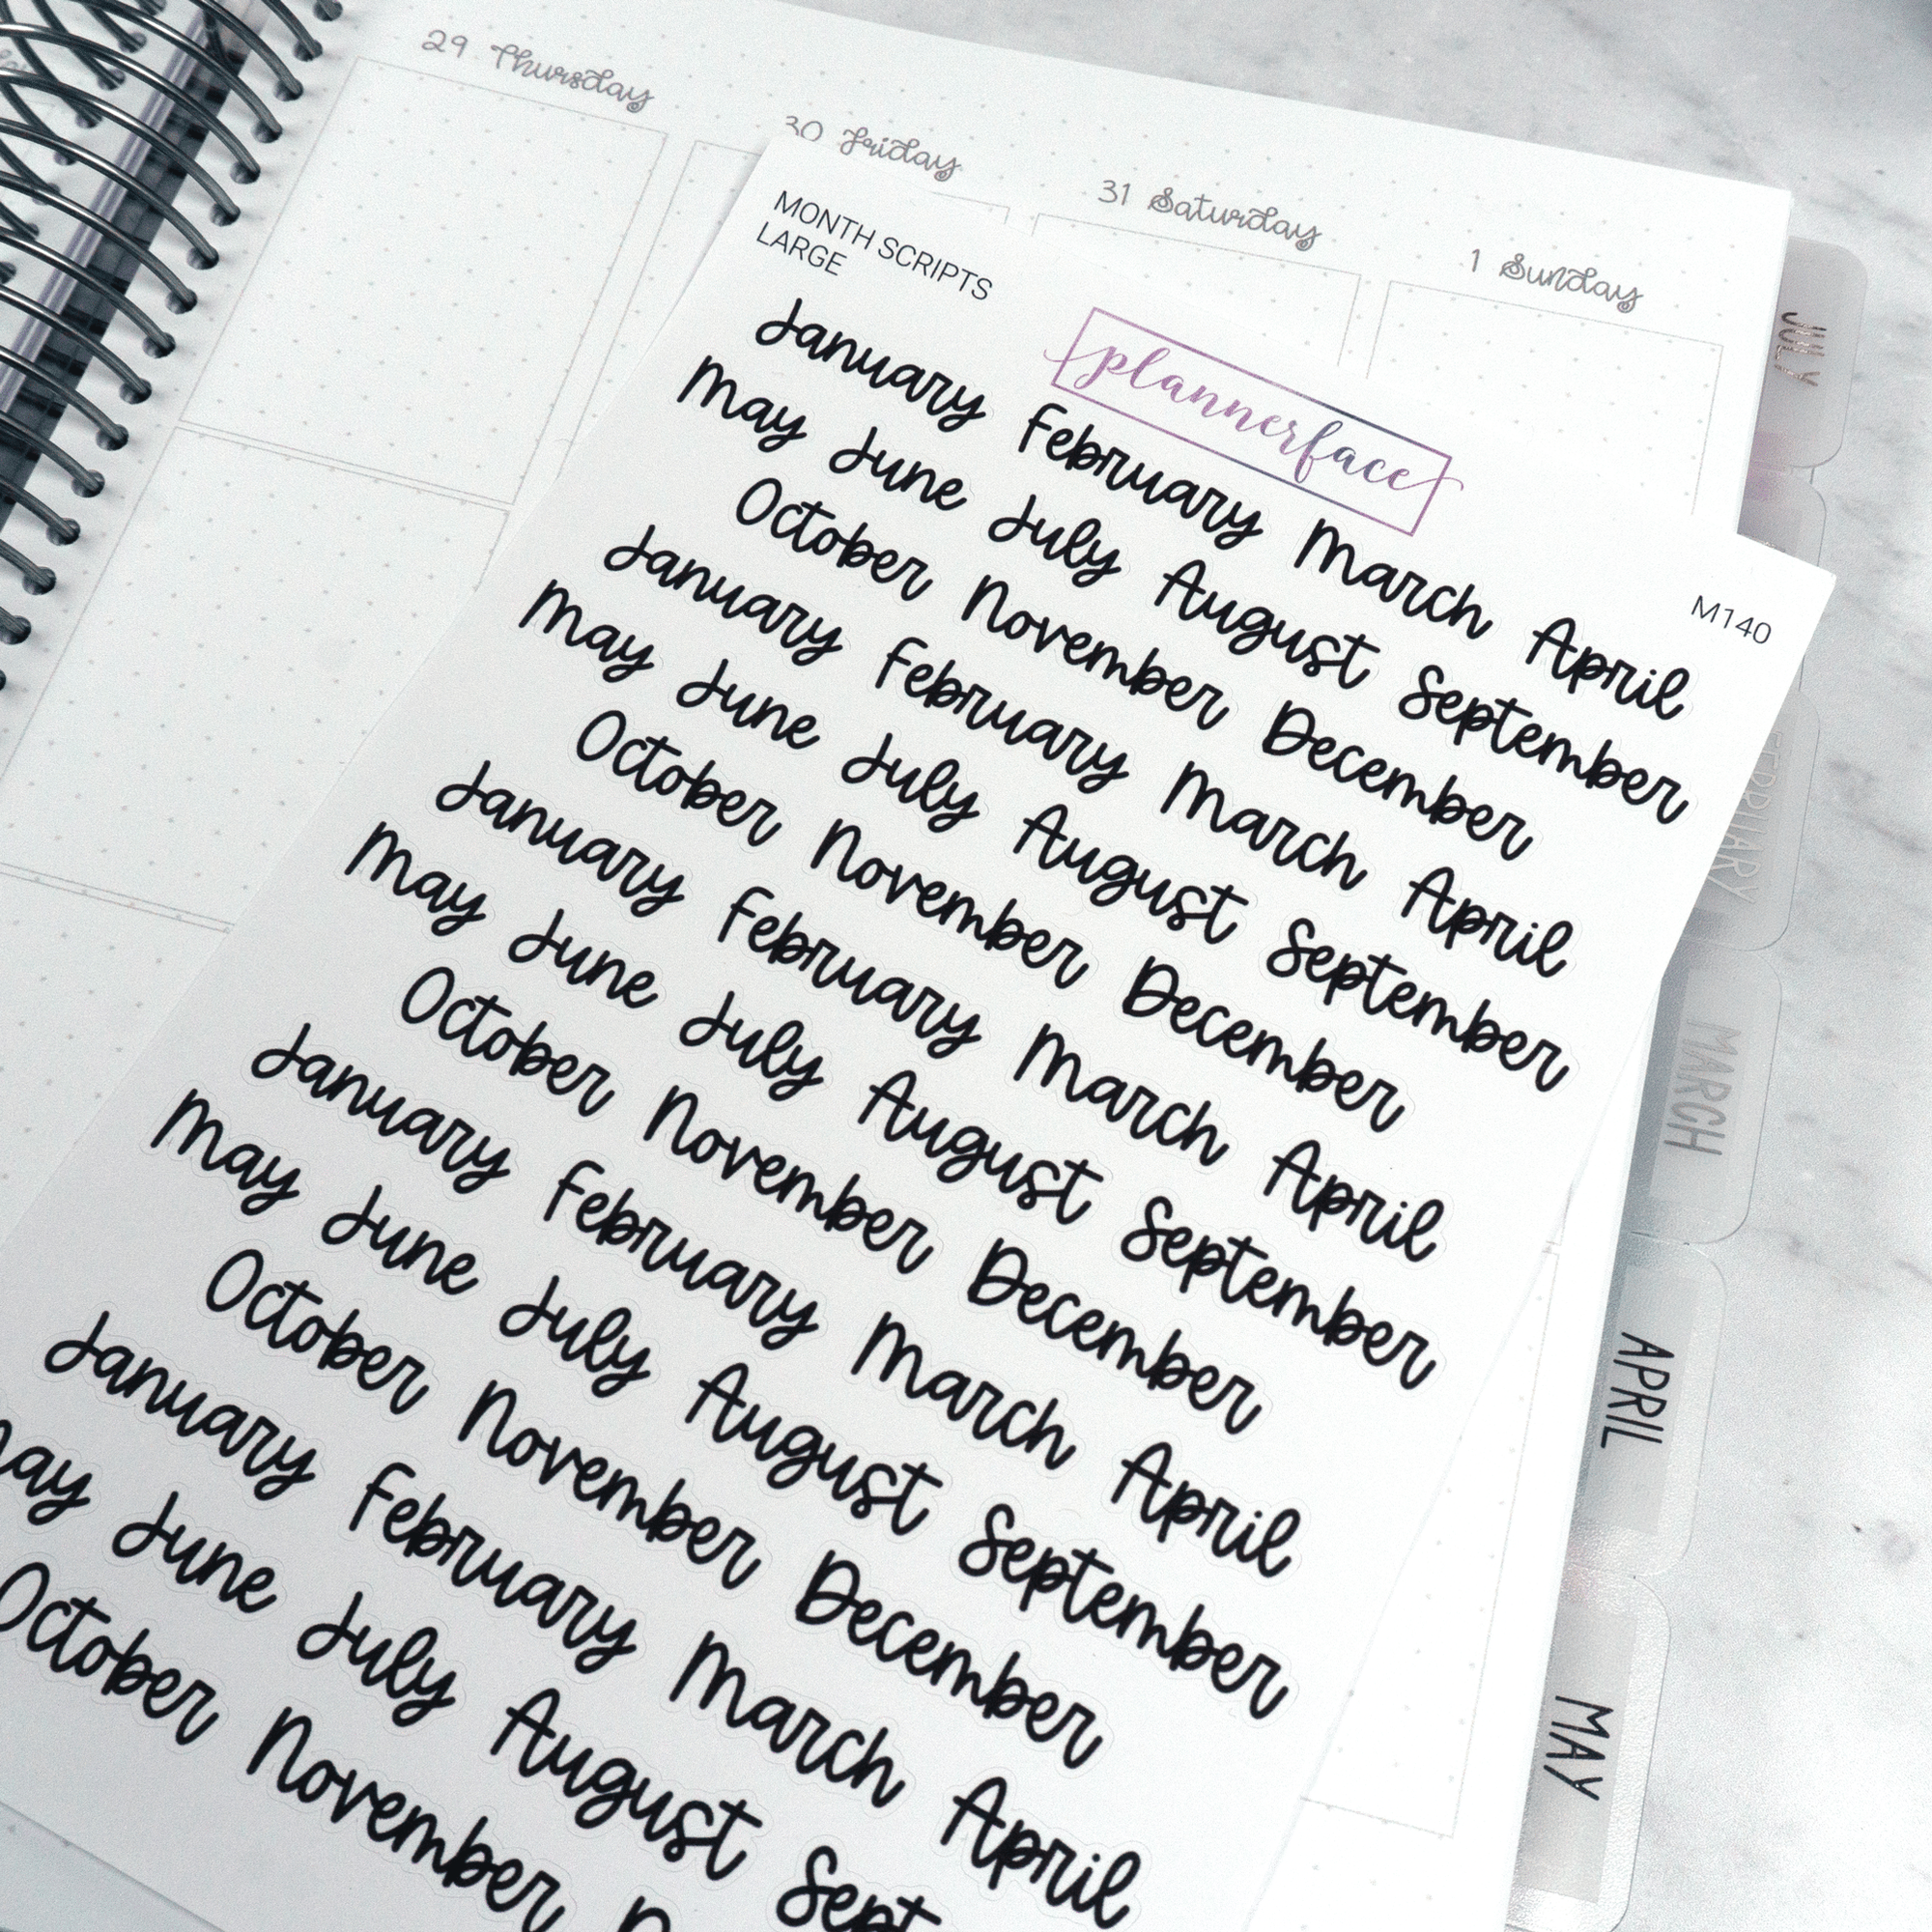 29 Thursday
30 Friday
31 Saturday
1 Sunday
MONTH SCRIPTS
LARGE
plannerface
M140
January February March April
May June July August September
October November December
January February March April
May June July August September
October November December
January February March April
May June July August September
October November December
January February March April
May June July August September
October November December
January February March April
May June July August Sept
October November D
JULY
FEBRUARY
MARCH
APRIL
MAY